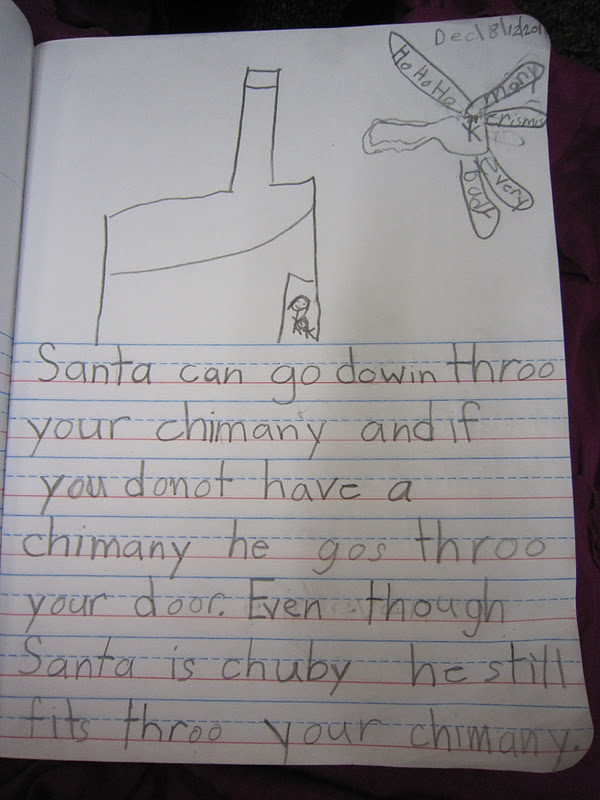 Dec/8/12/201
Ho Ho Ho
many
crismis
every
body
Santa can go dowin throo
your chimany and if
you donot have a
chimany he gos throo
your door. Even though
Santa is chuby he still
fits throo your chimany.